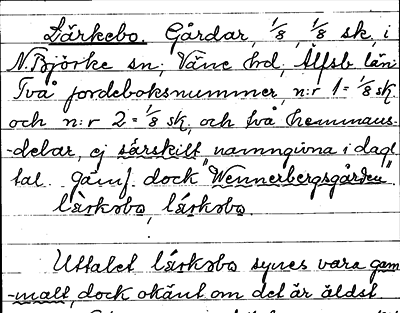 Lärkebo. Gårdar, 1/8, 1/8 sk, i
N. Björke sn, Väne hd, Älfsb. län.
Två jordeboksnummer, n:r 1 = 1/8 sk.
och n:r 2 = 1/8 sk, och två hemmans-
-delar, ej särskilt namngivna i dagl.
tal. Jämf. dock "Wennerbergsgården".
Uttalet synes vara gam
-malt, dock okänt om det är äldst.